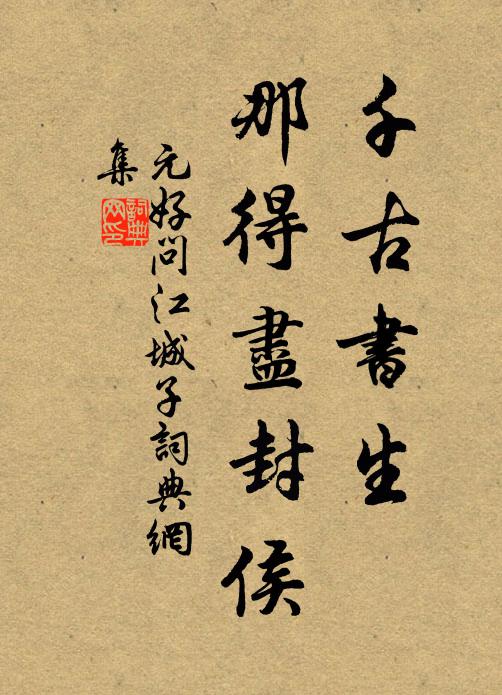 千古書生
那得盡封侯
元好問江城子詞典網
集
詞典
网印